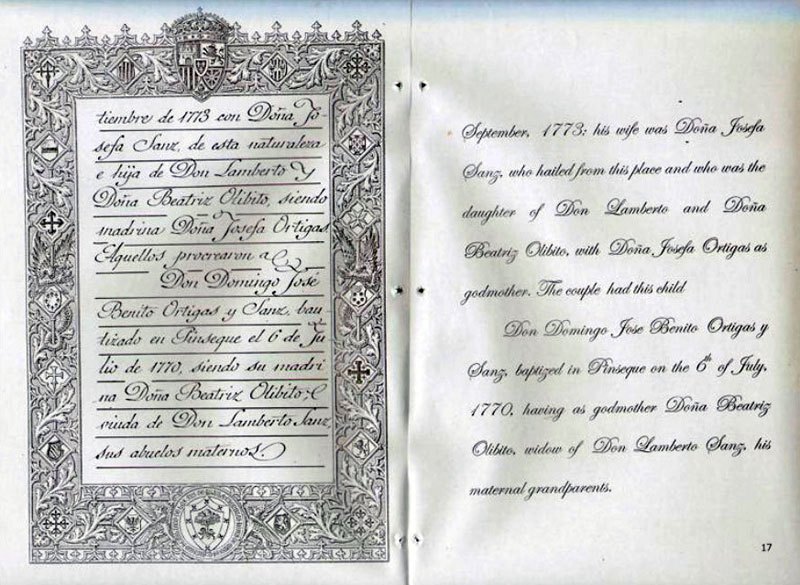 tiembre de 1773 con Doña Jo-
sefa Sanz, de esta naturaleza
e hija de Don Lamberto y
Doña Beatriz Olibito, siendo
madrina Doña Josefa Ortigas.
Aquellos procrearon a
Don Domingo José
Benito Ortigas y Sanz, bau-
tizado en Pinseque el 6 de Ju-
lio de 1770, siendo su madri-
na Doña Beatriz Olibito,
viuda de Don Lamberto Sanz,
sus abuelos maternos.
September, 1773; his wife was Doña Josefa
Sanz, who hailed from this place and who was the
daughter of Don Lamberto and Doña
Beatriz Olibito, with Doña Josefa Ortigas as
godmother. The couple had this child
Don Domingo Jose Benito Ortigas y
Sanz, baptized in Pinseque on the 6th of July,
1770, having as godmother Doña Beatriz
Olibito, widow of Don Lamberto Sanz, his
maternal grandparents.
17